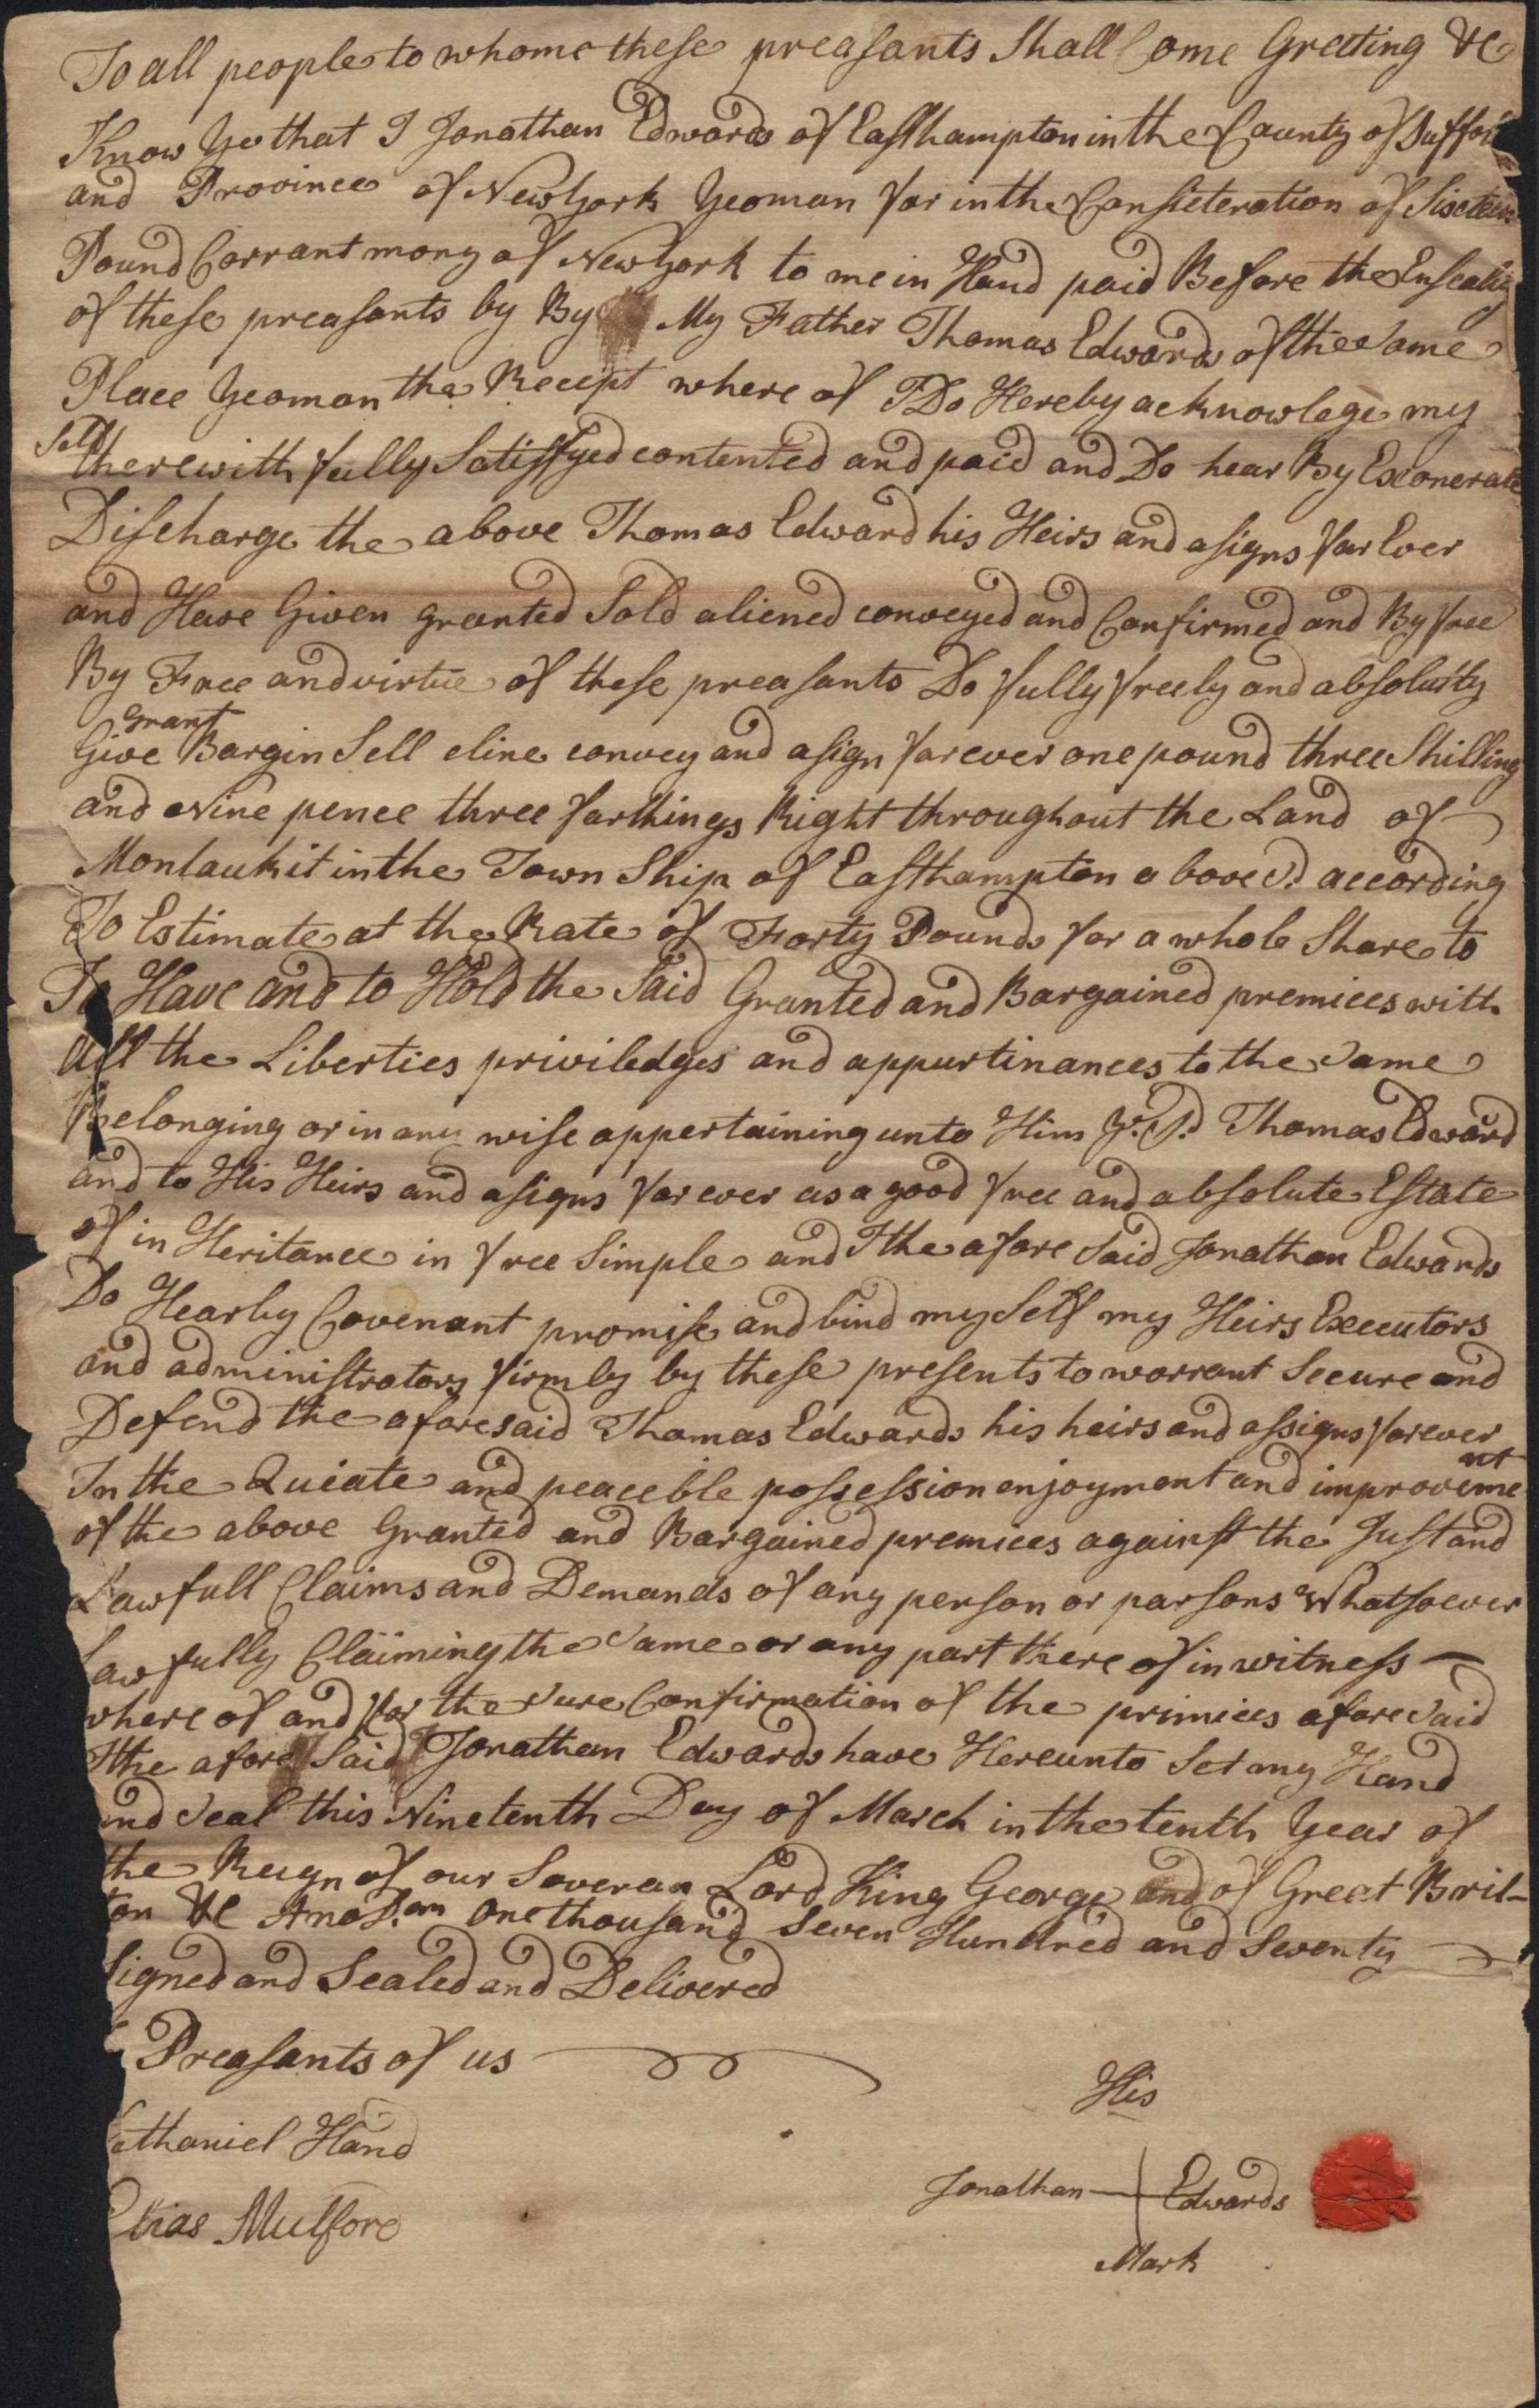 To all people to whome these preasants Shall Come Greeting &c
Know Ye that I Jonathan Edwards of Easthampton in the County of Suffol
and Province of New York Yeoman for in the Consieteration of Sixteen
Pound Corrant mony of New York to me in Hand paid Before the Ensealing
of these preasants by By My Father Thomas Edwards of the Same
Place Yeoman the Receipt where of I Do Hereby acknowlege my
Self
therewith fully Satisfyed contented and paid and Do hear By Exonerate
Discharge the above Thomas Edward his Heirs and asigns for Ever
and Have Given granted Sold aliened conveyed and Confirmed and By free
By Free and virtue of these preasants Do fully freely and absolutly
grant
Give Bargin Sell eline convey and asign forever one pound three Shilling
and Nine pence three farthings Right throughout the Land of
Montaukit in the Town Ship of Easthampton above Sd. according
To Estimate at the Rate of Forty Pounds for a whole Share to
To Have and to Hold the Said Granted and Bargained premices with
all the Liberties priviledges and appurtinances to the Same
Belonging or in any wise appertaining unto Him ye. Sd. Thomas Edward
and to His Heirs and asigns forever as a good free and absolute Estate
of in Heritance in free Simple and I the afore Said Jonathan Edwards
Do Hearby Covenant promise and bind my Self my Heirs Executors
and administrators firmly by these presents to warrant Secure and
Defend the aforesaid Thomas Edwards his heirs and assigns forever
In the Quiate and peaceble possession enjoyment and improveme
nt
of the above Granted and Bargained premices against the Just and
Lawfull Claims and Demands of any person or parsons Whatsoever
Lawfully Claiming the Same or any part there of in witness
where of and for the Sure Confirmation of the primices afore Said
I the afore Said Jonathan Edwards have Hereunto Set my Hand
and Seal this Ninetenth Day of March in the tenth Year of
the Reign of our Soveran Lord King George and of Great Brit-
ton &c AnoDom One thousand Seven Hundred and Seventy
Signed and Sealed and Delivered
Preasants of us
athaniel Hand
Elias Mulford
His
Jonathan Edwards
Mark